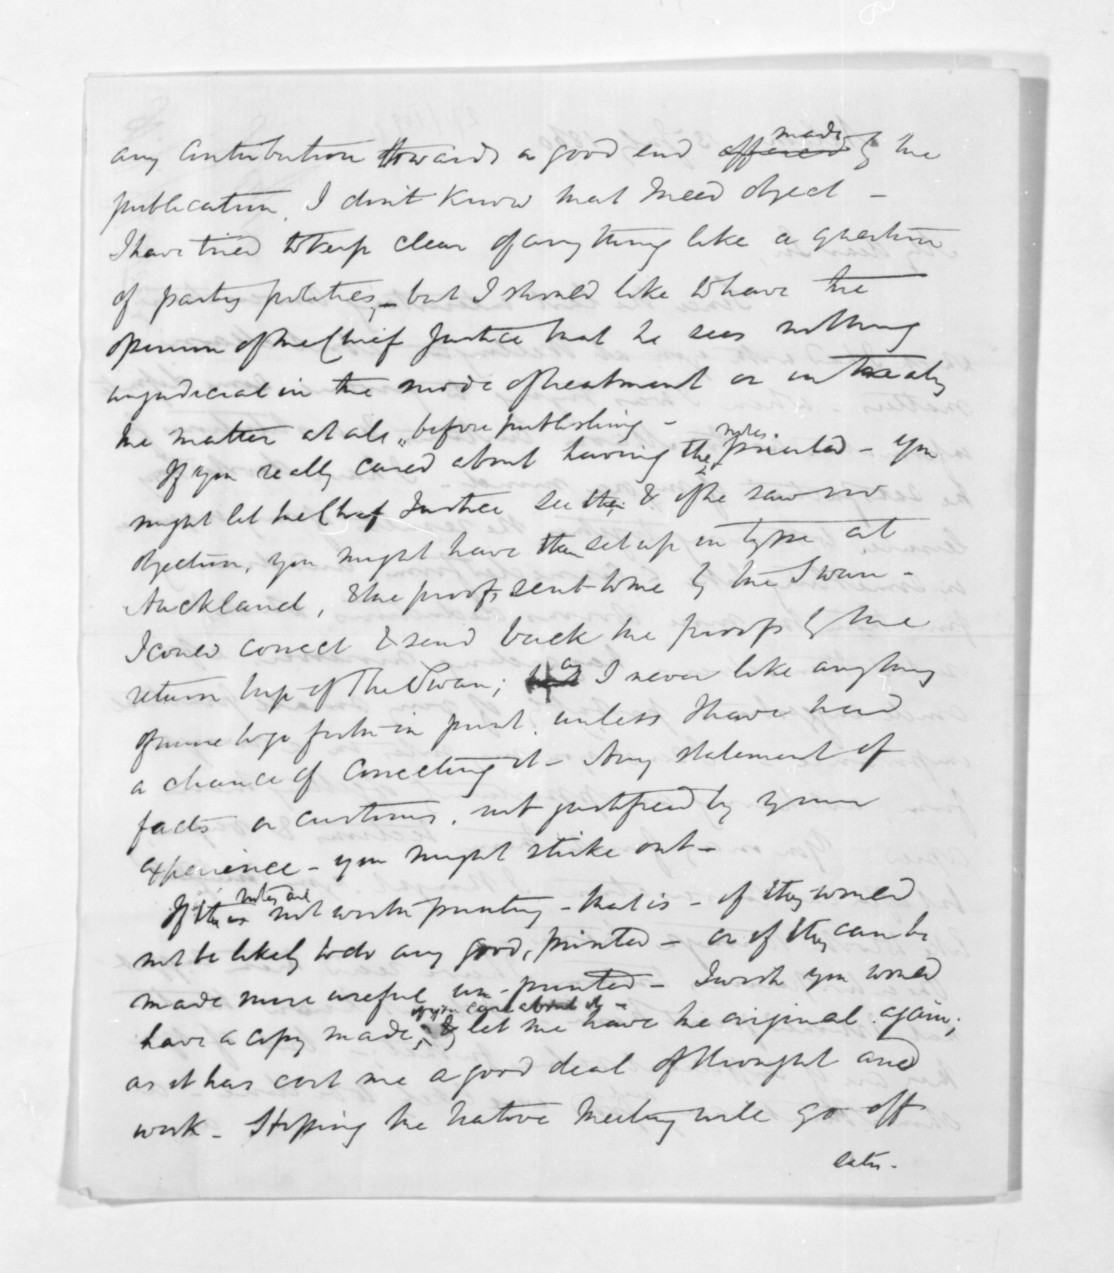 any contribution towards a good end offered made by the
publication, I don't know that I need object -
I have tried to keep clear of anything like a question
of party politics, - but I should like to have the
opinion of the Chief Justice that he sees nothing
unjudicial in the mode of treatment or in treating
the matter at all, before publishing -
If you really cared about having the notes printed - you
might let the Chief Justice see them & if he saw no
objection, you might have them set up in type at
Auckland, & the proofs sent to me by the Swan -
I could correct & send back the proofs by the
return trip of The Swan; as I never like anything
of mine to go forth in print, unless I have had
a chance of correcting it - Any statement of
facts or customs, not justified by your
experience - you might strike out -
If the notes are not worth printing - that is - if they would
not be likely to do any good, printed - or if they can be
made more useful un-printed - I wish you would
have a copy made, if you care about it - & let me have the original again;
as it has cost me a good deal of thought and
work - Hoping the Native Meeting will go off